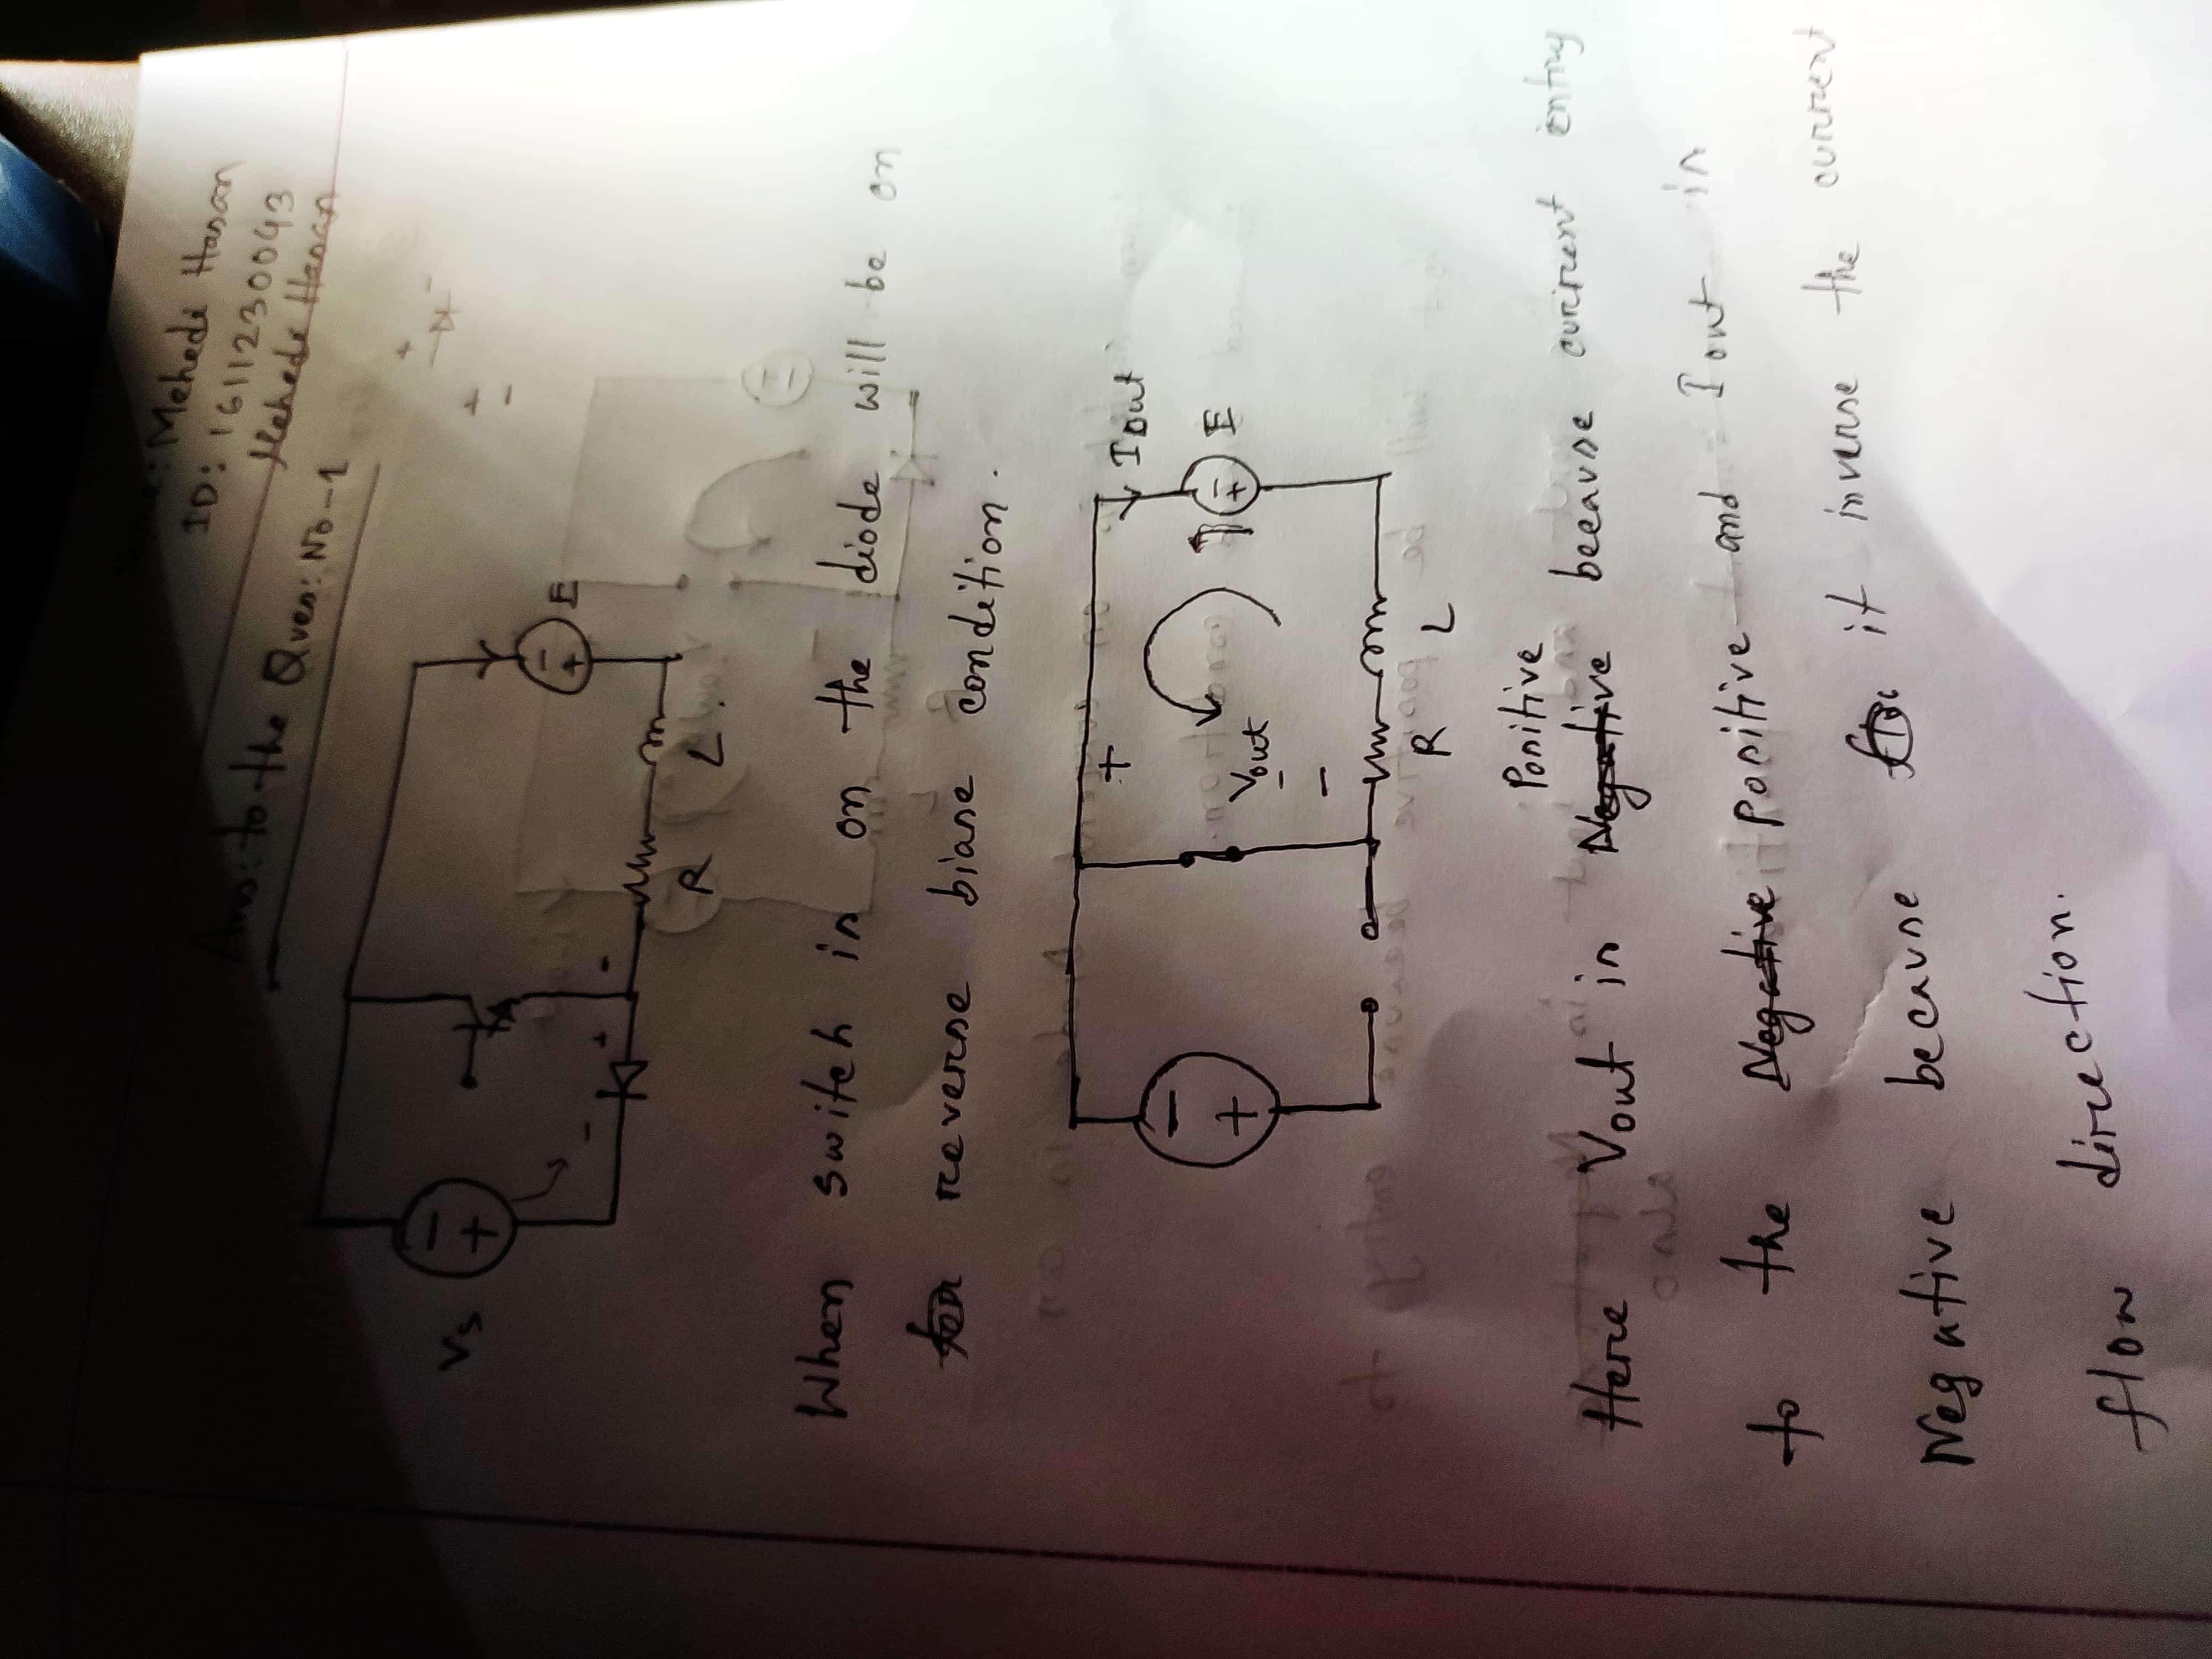 Name: Mehedi Hasan
ID: 16111230 0043
Mehedi Hasan
Ans: to the Ques: No-1
+ -
+
-
Vs
-
+
-
+
-
R
L
-
+
E
When switch in on the diode will be on
reverse biase condition.
-
+
+
Vout
-
Iout
-
+
E
R L
Positive
Here Vout in Negative because current entry
to the Negative Positive and Iout in
Negative because it inverse the current
flow direction.